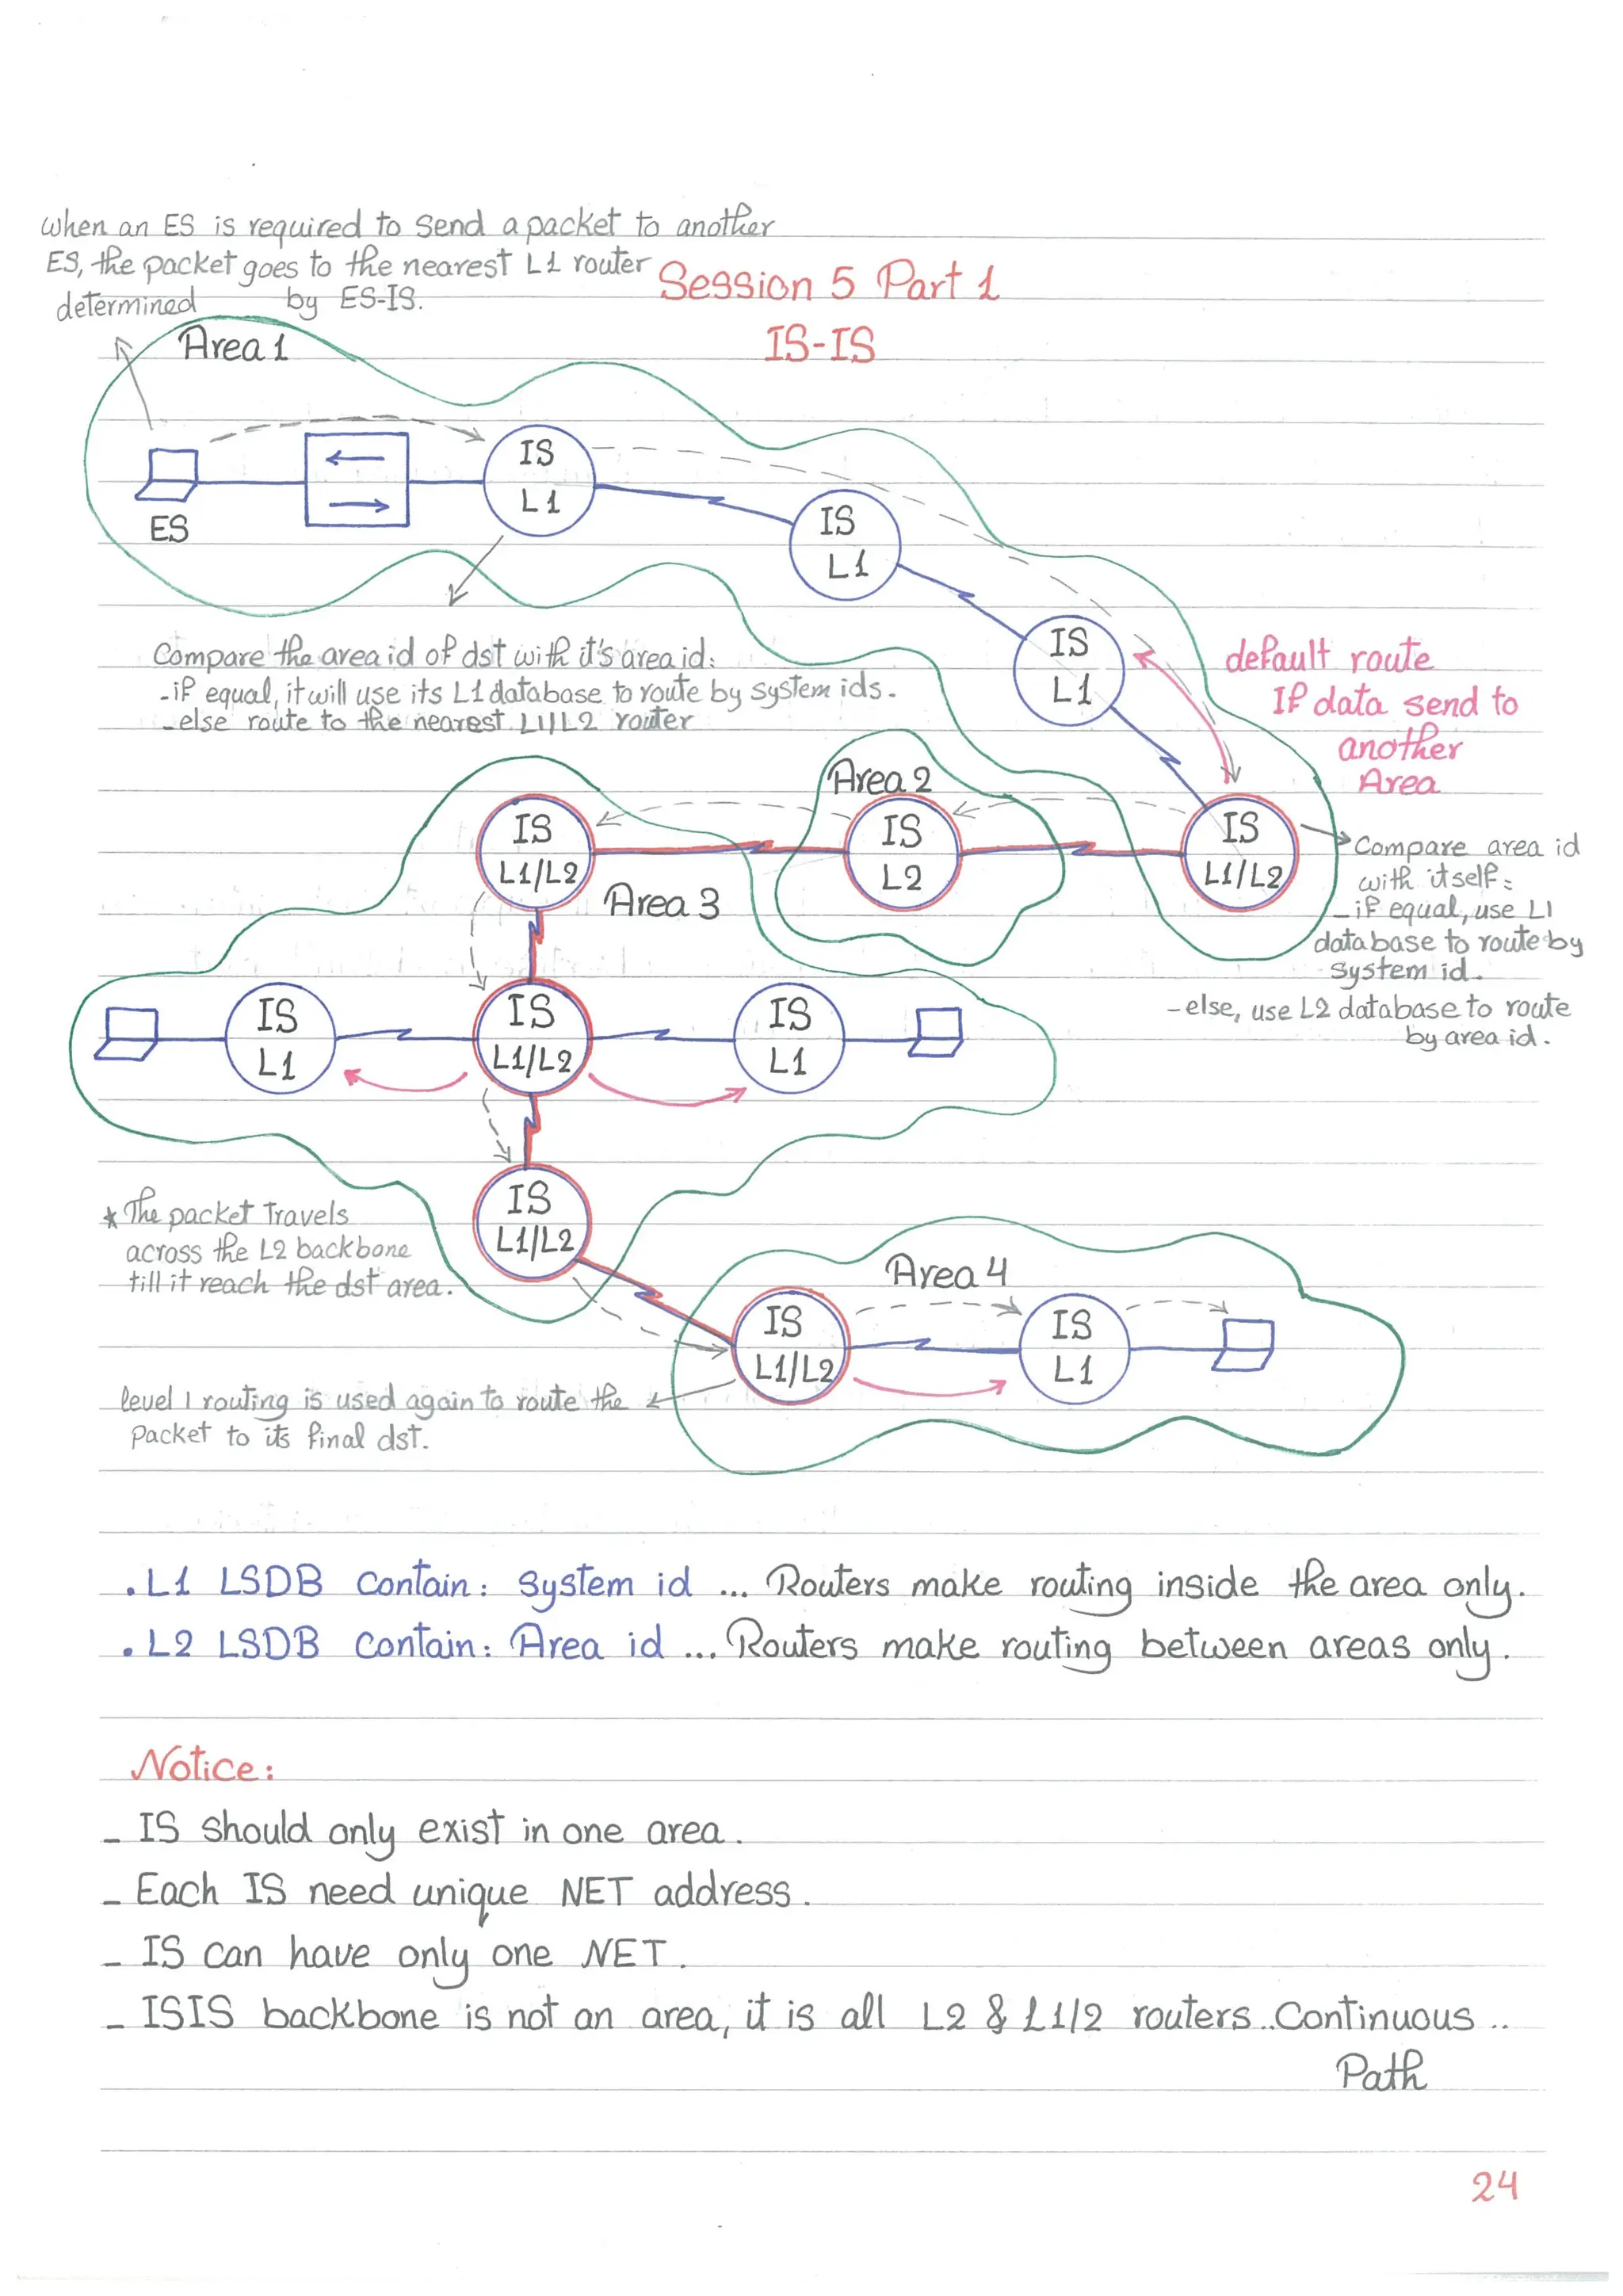 when an ES is required to send a packet to another
ES, the packet goes to the nearest L1 router
determined by ES-IS.
Session 5 Part 1
IS-IS
Area 1
IS
L1
ES
IS
L1
IS
L1
default route
If data send to
another
Area
Compare the area id of dst with it's area id:
-if equal, it will use its L1 database to route by system ids.
-else route to the nearest L1/L2 router
Area 2
IS
L1/L2
IS
L2
IS
L1/L2
Area 3
Compare area id
with itself:
-if equal, use L1
database to route by
system id.
-else, use L2 database to route
by area id.
IS
L1
IS
L1/L2
IS
L1
IS
L1/L2
* The packet travels
across the L2 backbone
till it reach the dst area.
Area 4
IS
L1/L2
IS
L1
level 1 routing is used again to route the
Packet to its final dst.
. L1 LSDB Contain: System id ... Routers make routing inside the area only.
. L2 LSDB Contain: Area id ... Routers make routing between areas only.
Notice:
- IS should only exist in one area.
- Each IS need unique NET address.
- IS can have only one NET.
- ISIS backbone is not an area, it is all L2 & L1/2 routers.. Continuous ..
Path
24